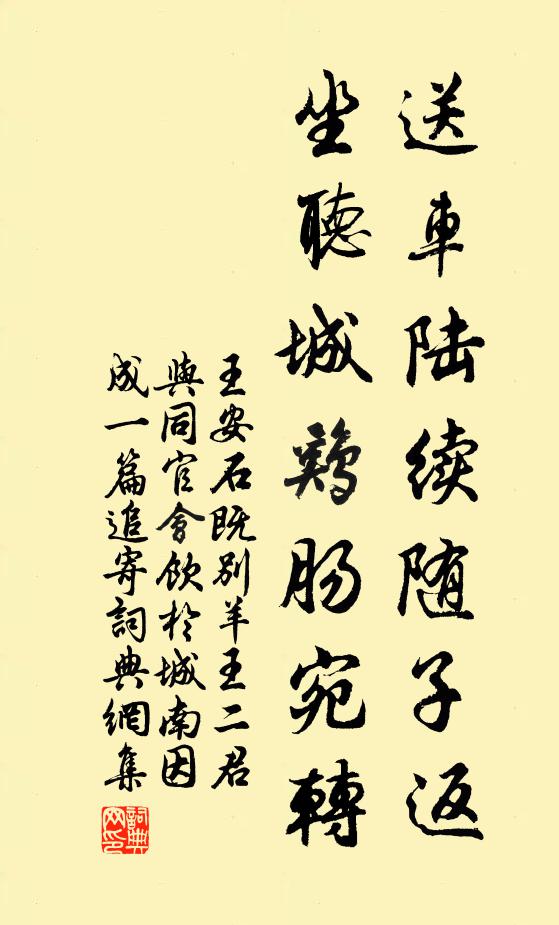 送车陆续随子返
坐聽城鷄肠宛轉
王安石既别羊王二君
與同官會飲於城南因
成一篇追寄詞典網集
詞典
网印